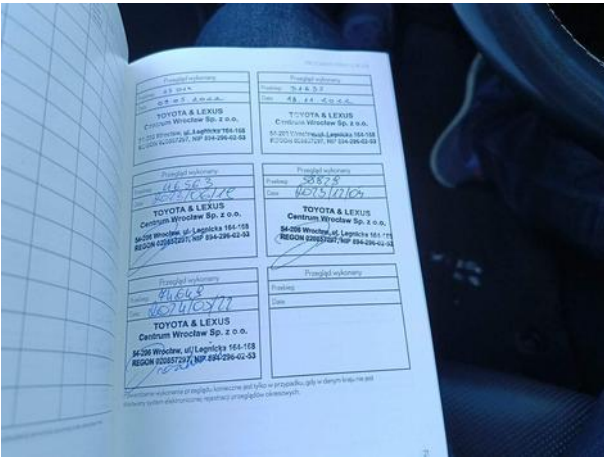 Przegląd wykonany
Przebieg:
Data:
TOYOTA & LEXUS
Centrum Wrocław Sp. z o.o.
54-206 Wrocław, ul. Legnicka 164-168
REGON 020857297, NIP 894-296-02-53
Przegląd wykonany
Przebieg:
Data:
TOYOTA & LEXUS
Centrum Wrocław Sp. z o.o.
54-206 Wrocław, ul. Legnicka 164-168
REGON 020857297, NIP 894-296-02-53
Przegląd wykonany
Przebieg:
Data: 2023/06/12
TOYOTA & LEXUS
Centrum Wrocław Sp. z o.o.
54-206 Wrocław, ul. Legnicka 164-168
REGON 020857297, NIP 894-296-02-53
Przegląd wykonany
Przebieg: 58828
Data: 2023/12/04
TOYOTA & LEXUS
Centrum Wrocław Sp. z o.o.
54-206 Wrocław, ul. Legnicka 164-168
REGON 020857297, NIP 894-296-02-53
Przegląd wykonany
Przebieg: 74648
Data: 2024/05/22
TOYOTA & LEXUS
Centrum Wrocław Sp. z o.o.
54-206 Wrocław, ul. Legnicka 164-168
REGON 020857297, NIP 894-296-02-53
Przegląd wykonany
Przebieg:
Data:
Potwierdzenie wykonania przeglądu konieczne jest tylko w przypadku, gdy w danym kraju nie jest
stosowany system elektronicznej rejestracji przeglądów okresowych.